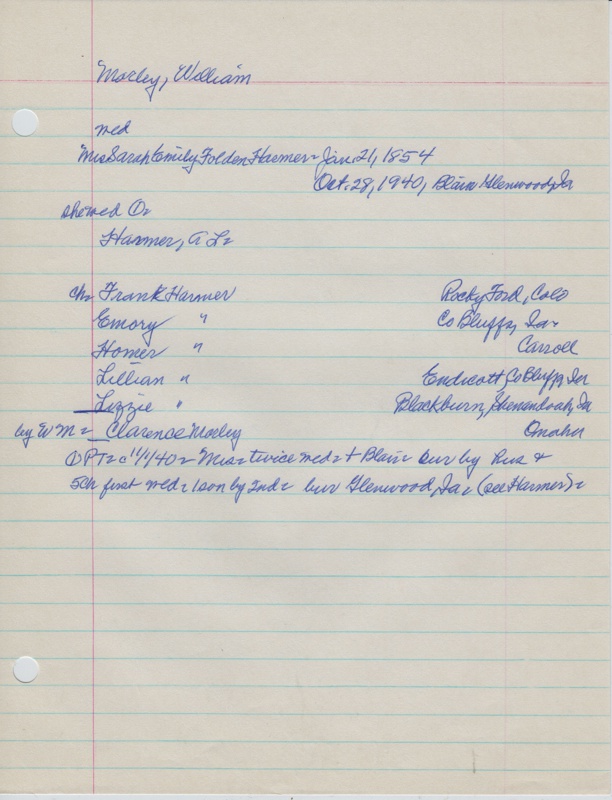 Morley, William
med
Mis Sarah Emily Folden Harmer - Jan. 21, 1854
Oct. 28, 1940, Blair Glenwood, Ia
shewed O-
Harmer, A L-
ch- Frank Harmer Rocky Ford, Colo
Emory " Co Bluffs, Ia-
Homer " Carroll
Lillian " Endicott, Co Bluffs, Ia
Lizzie " Blackburn, Shenandoah, Ia
by W M- Clarence Morley Omaha
PT- c 11/1/40 - Mis- twice med- + Blair- sur by hus &
5ch first med- 1 son by 2nd- bur Glenwood, Ia- (see Harmer)-